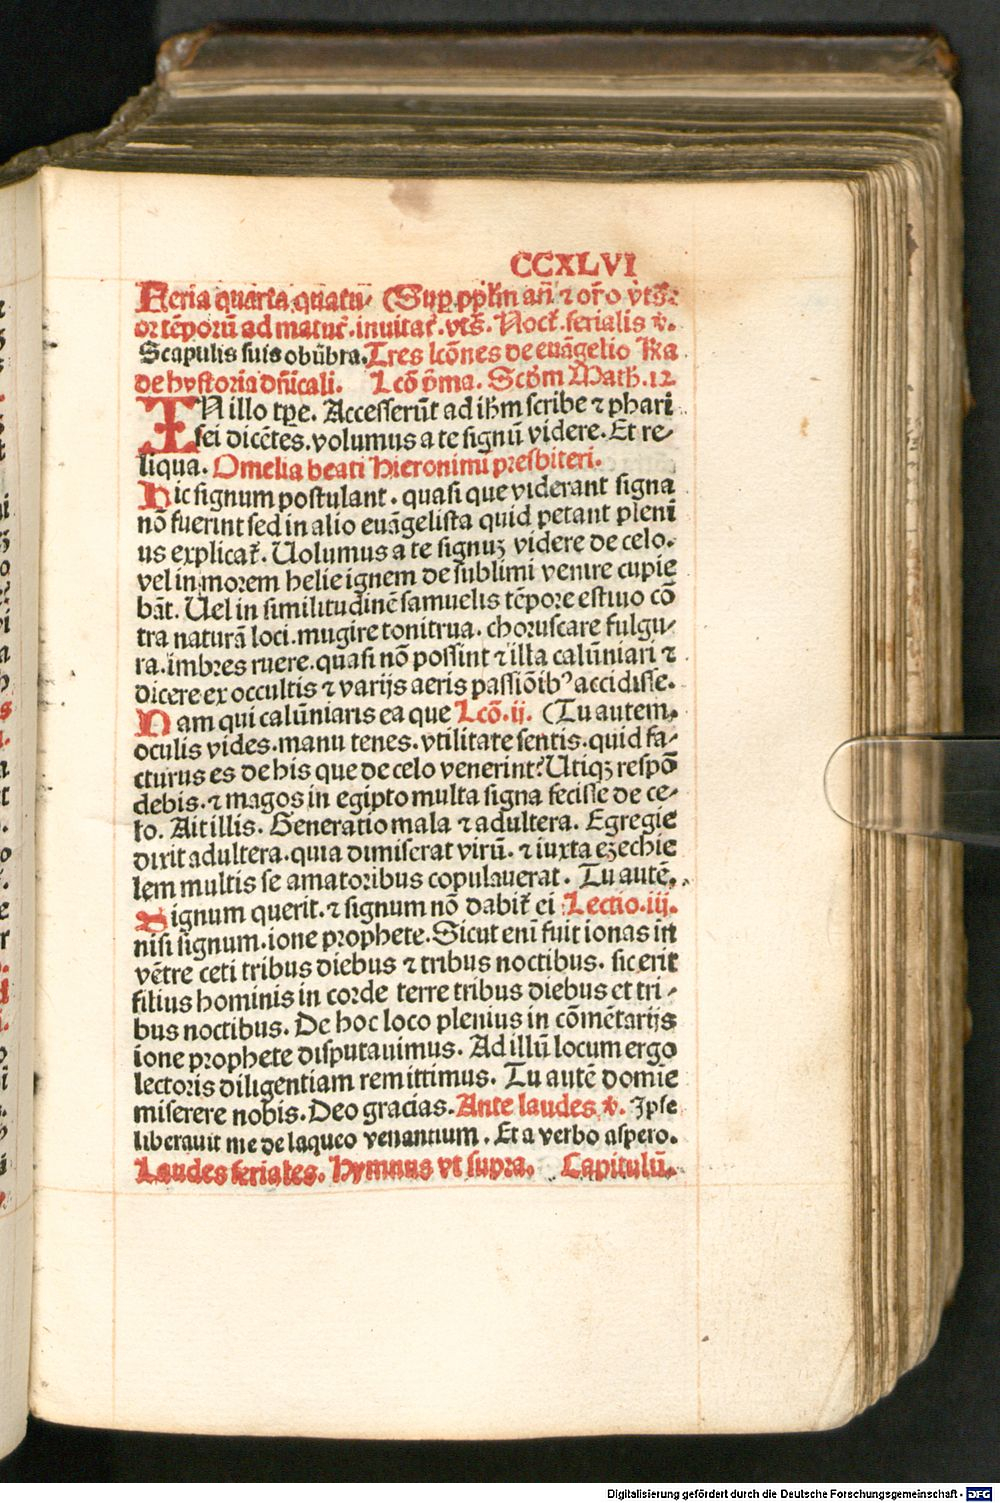 CCXLVI
Feria quarta quatu- (Sup pp̄lm an̄ ⁊ or̄o vts̄.
or tēporū ad matut̄. inuitat̄. vts̄. Noct̄. ferialis v̄.
Scapulis suis obūbra. Tres lcōnes de euāgelio Ra
de hystoria dn̄icali. Lcō p̄ma. Scd̄m Math. 12
IN illo tp̄e. Accesserūt ad ih̄m scribe ⁊ phari
sei dicētes. volumus a te signū videre. Et re-
liqua. Omelia beati Hieronimi presbiteri.
Hic signum postulant. quasi que viderant signa
nō fuerint sed in alio euāgelista quid petant pleni
us explicat̄. Uolumus a te signuꝫ videre de celo.
vel in morem helie ignem de sublimi venire cupie
bāt. Uel in similitudinē samuelis tēpore estiuo cō
tra naturā loci. mugire tonitrua. choruscare fulgu-
ra. imbres ruere. quasi nō possint ⁊ illa calūniari ⁊
dicere ex occultis ⁊ varijs aeris passiōibꝰ accidisse.
Nam qui calūniaris ea que Lcō. ij. (Tu autem.
oculis vides. manu tenes. vtilitate sentis. quid fa-
cturus es de his que de celo venerint? Utiqꝫ respō
debis. ⁊ magos in egipto multa signa fecisse de ce-
lo. Ait illis. Generatio mala ⁊ adultera. Egregie
dixit adultera. quia dimiserat virū. ⁊ iuxta ezechie
lem multis se amatoribus copulauerat. Tu autē.
Signum querit. ⁊ signum nō dabit̄ ei Lectio. iij.
nisi signum. ione prophete. Sicut eni fuit ionas in
vētre ceti tribus diebus ⁊ tribus noctibus. sic erit
filius hominis in corde terre tribus diebus et tri-
bus noctibus. De hoc loco plenius in cōmētarijs
ione prophete disputauimus. Ad illū locum ergo
lectoris diligentiam remittimus. Tu autē domie
miserere nobis. Deo gracias. Ante laudes v̄. Ipse
liberauit me de laqueo venantium. Et a verbo aspero.
Laudes feriales. Hymnus vt supra. Capitulū.
Digitalisierung gefördert durch die Deutsche Forschungsgemeinschaft - DFG